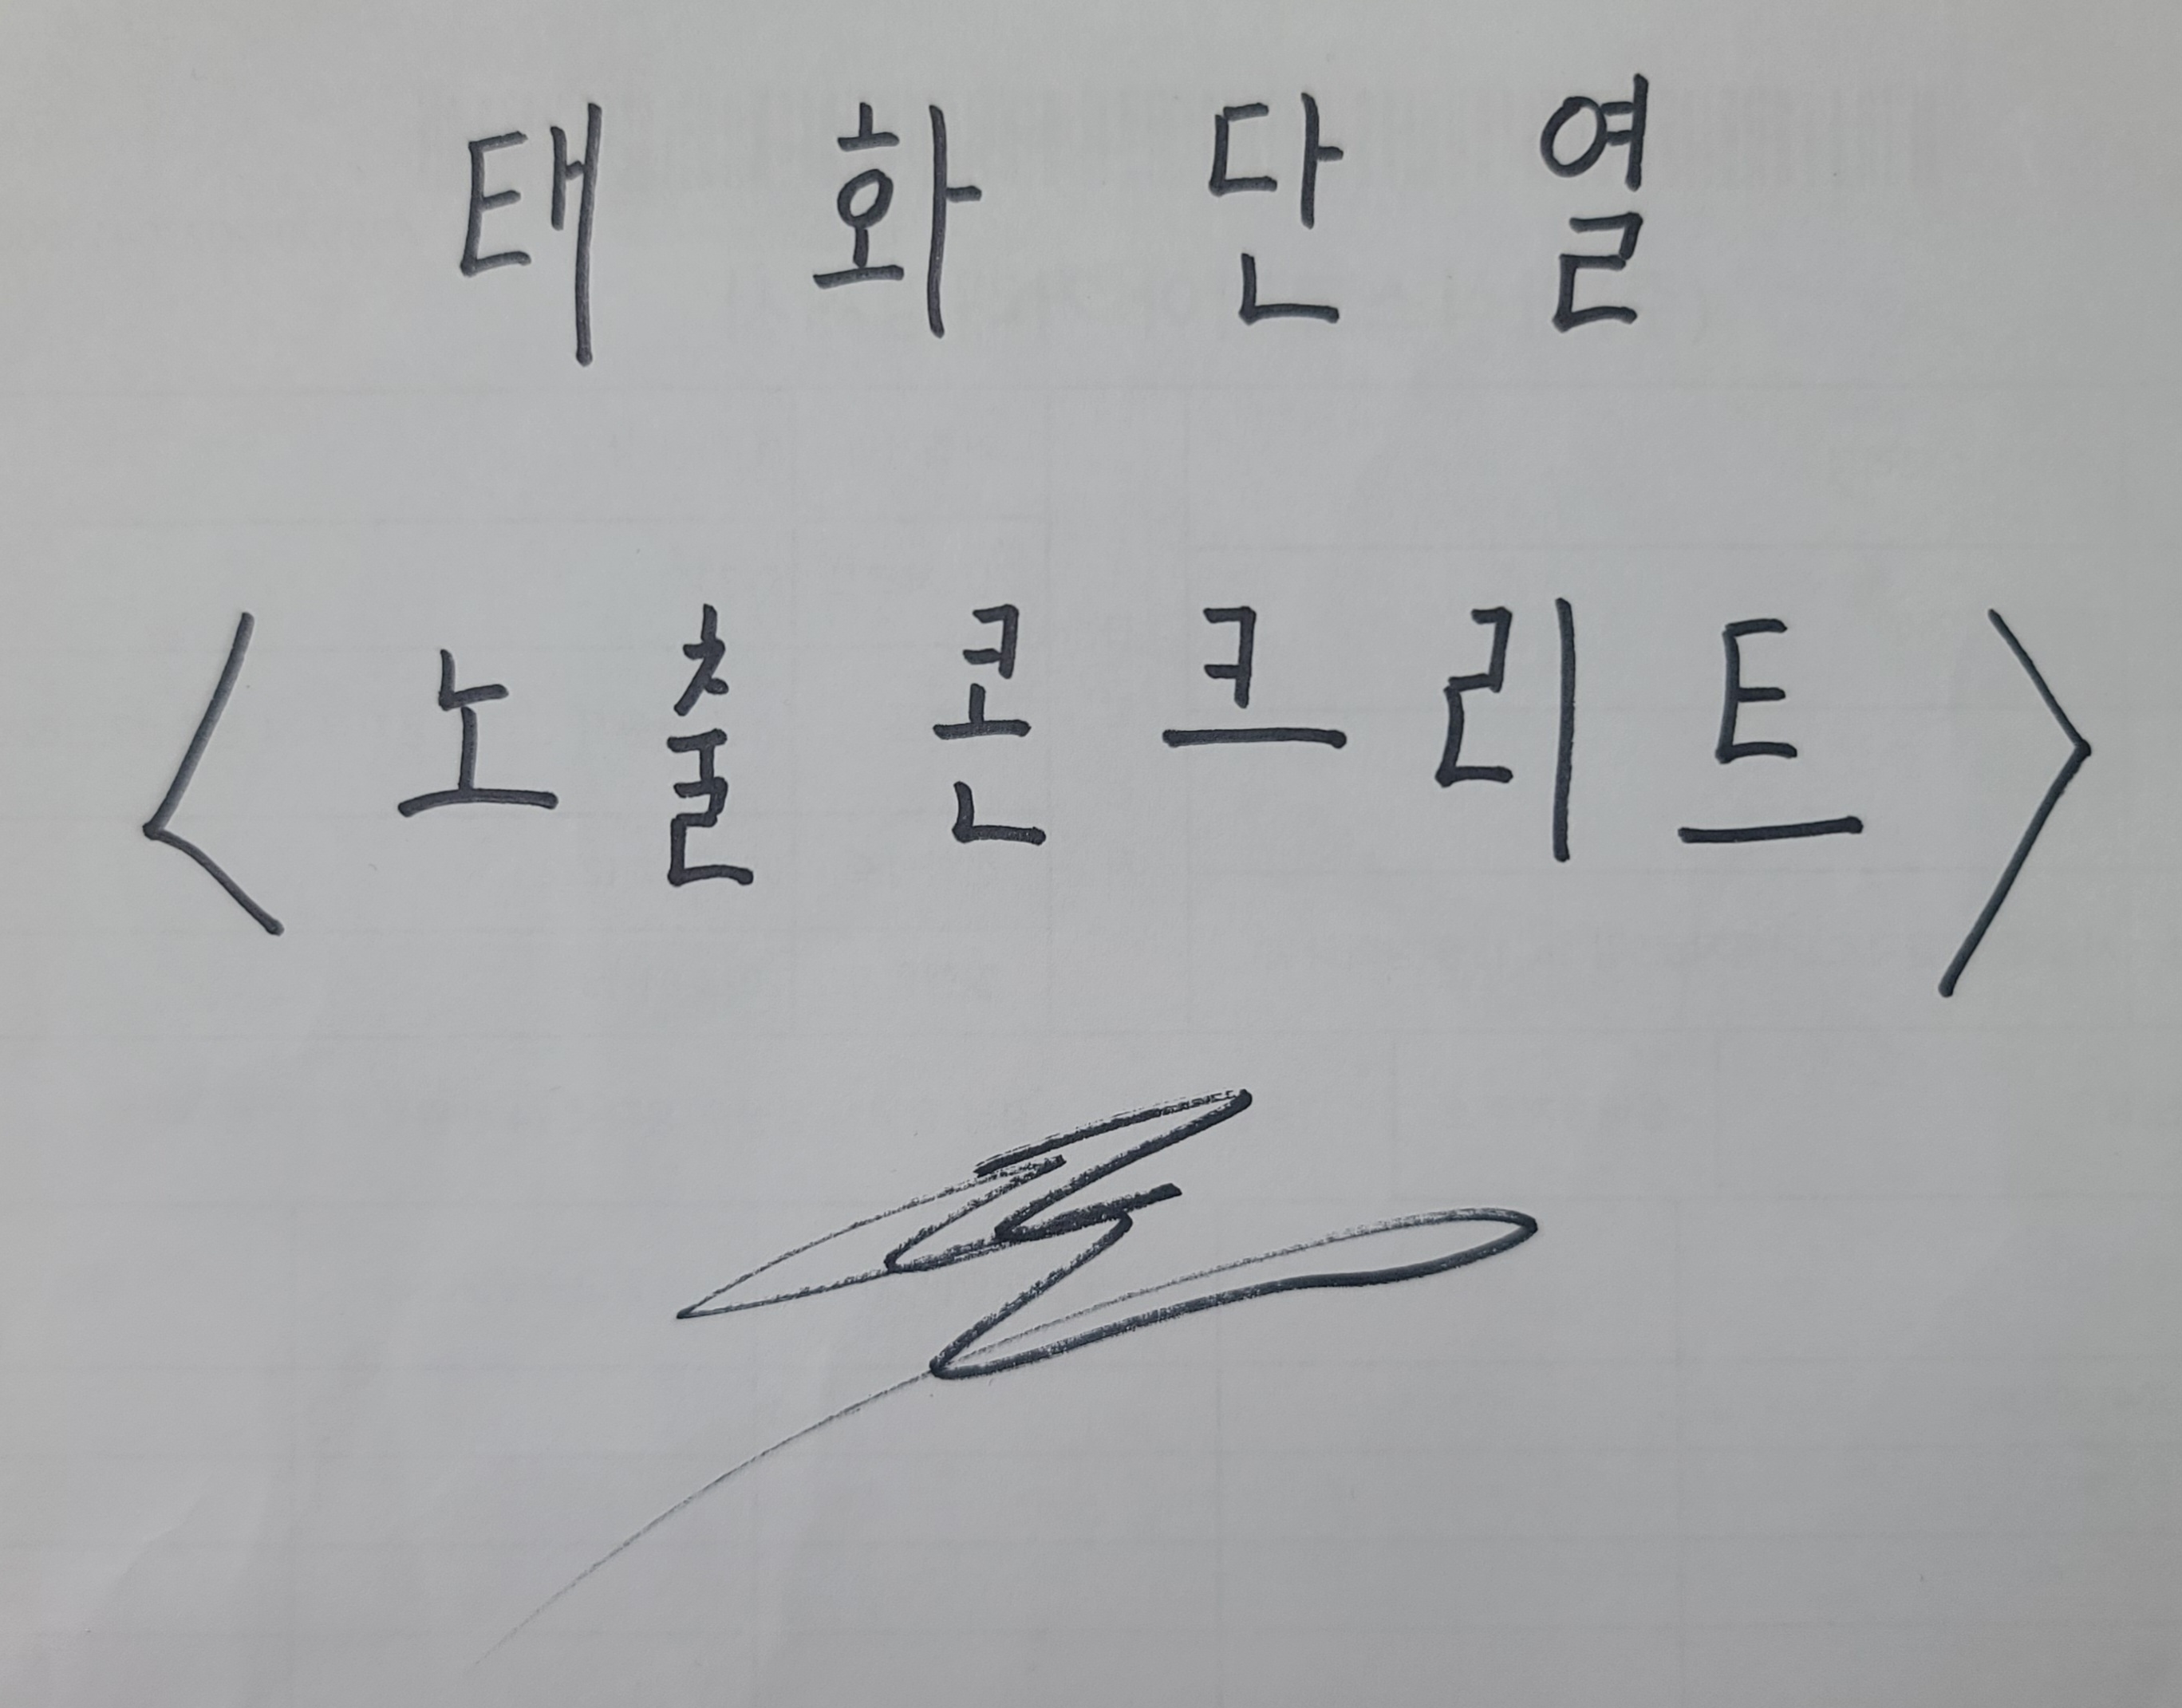 태화단열
<노출콘크리트>